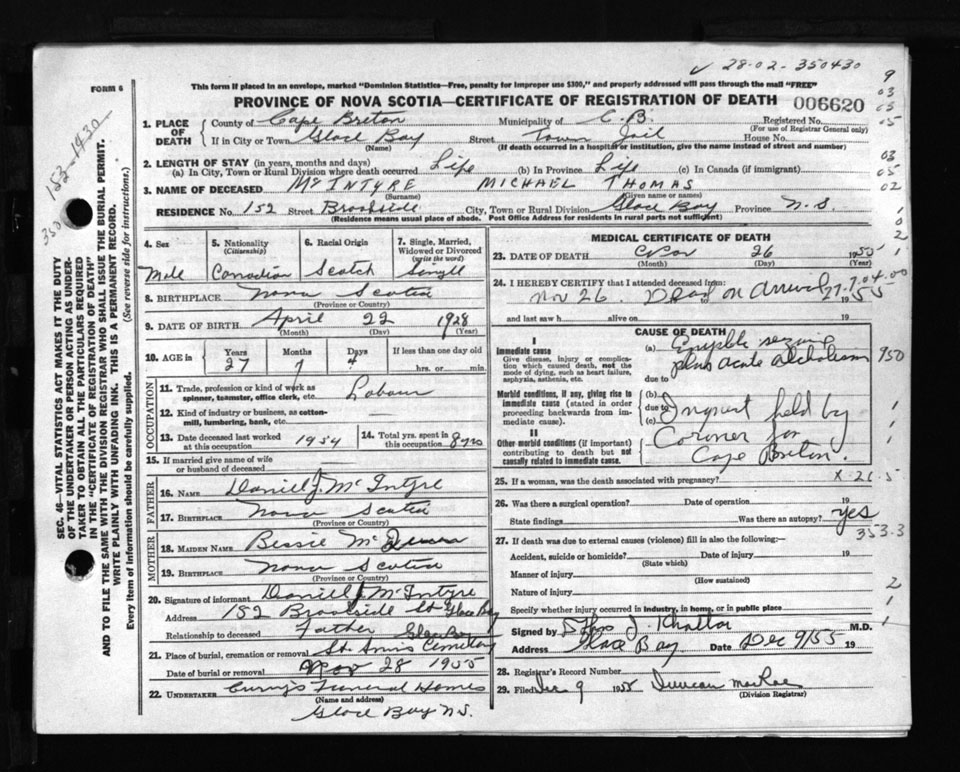 ✓ 28-02-350430
FORM 6
This form if placed in an envelope, marked "Dominion Statistics—Free, penalty for improper use $300," and properly addressed will pass through the mail "FREE"
PROVINCE OF NOVA SCOTIA—CERTIFICATE OF REGISTRATION OF DEATH 006620
153-1430
SEC. 46—VITAL STATISTICS ACT MAKES IT THE DUTY
OF THE UNDERTAKER OR PERSON ACTING AS UNDER-
TAKER TO OBTAIN ALL THE PARTICULARS REQUIRED
IN THE "CERTIFICATE OF REGISTRATION OF DEATH"
AND TO FILE THE SAME WITH THE DIVISION REGISTRAR WHO SHALL ISSUE THE BURIAL PERMIT.
WRITE PLAINLY WITH UNFADING INK. THIS IS A PERMANENT RECORD.
Every item of information should be carefully supplied. (See reverse side for instructions.)
1. PLACE OF DEATH
County of Cape Breton Municipality of C.B. Registered No.
(For use of Registrar General only)
If in City or Town Glace Bay Street Town Jail House No.
(Name) (If death occurred in a hospital or institution, give the name instead of street and number)
2. LENGTH OF STAY (in years, months and days)
(a) In City, Town or Rural Division where death occurred Life (b) In Province Life (c) In Canada (if immigrant)
3. NAME OF DECEASED McINTYRE MICHAEL THOMAS
(Surname) (Given name or names)
RESIDENCE No. 152 Street Brookside City, Town or Rural Division Glace Bay Province N.S.
(Residence means usual place of abode. Post Office Address for residents in rural parts not sufficient)
4. Sex Male
5. Nationality (Citizenship) Canadian
6. Racial Origin Scotch
7. Single, Married, Widowed or Divorced (write the word) Single
8. BIRTHPLACE Nova Scotia
(Province or Country)
9. DATE OF BIRTH April 22 1928
(Month) (Day) (Year)
10. AGE in Years 27 Months 7 Days 4 If less than one day old
hrs. or min.
OCCUPATION
11. Trade, profession or kind of work as spinner, teamster, office clerk, etc. Labour
12. Kind of industry or business, as cotton-mill, lumbering, bank, etc. —
13. Date deceased last worked at this occupation 1954 14. Total yrs. spent in this occupation 8 yrs
15. If married give name of wife or husband of deceased —
FATHER
16. NAME Daniel J McIntyre
17. BIRTHPLACE Nova Scotia
(Province or Country)
MOTHER
18. MAIDEN NAME Bessie
19. BIRTHPLACE Nova Scotia
(Province or Country)
20. Signature of informant Daniel J McIntyre
Address 152 Brookside St Glace Bay
Relationship to deceased Father
21. Place of burial, cremation or removal St Anns Cemetery
Date of burial or removal Nov 28 1955
22. UNDERTAKER Curry's Funeral Homes
(Name and address)
Glace Bay N.S.
MEDICAL CERTIFICATE OF DEATH
23. DATE OF DEATH Nov 26 1955
(Month) (Day) (Year)
24. I HEREBY CERTIFY that I attended deceased from:
Nov 26. Dead on arrival 1955
and last saw h alive on 19
CAUSE OF DEATH
I
Immediate cause
Give disease, injury or complication which caused death, not the mode of dying, such as heart failure, asphyxia, asthenia, etc.
(a) seizure
plus acute alcoholism 950
due to
Morbid conditions, if any, giving rise to immediate cause (stated in order proceeding backwards from immediate cause).
(b)
due to Inquest held by
(c) Coroner for
Cape Breton.
II
Other morbid conditions (if important) contributing to death but not causally related to immediate cause.
25. If a woman, was the death associated with pregnancy? X-26.5
26. Was there a surgical operation? Date of operation 19
State findings Was there an autopsy? yes
353.3
27. If death was due to external causes (violence) fill in also the following:—
Accident, suicide or homicide? Date of injury 19
(State which)
Manner of injury
(How sustained)
Nature of injury
Specify whether injury occurred in industry, in home, or in public place
Signed by Thos J. Khattar M.D.
Address Glace Bay Date Dec 9/55 19
28. Registrar's Record Number
29. Filed Dec 9 1955 Duncan MacRae
(Division Registrar)